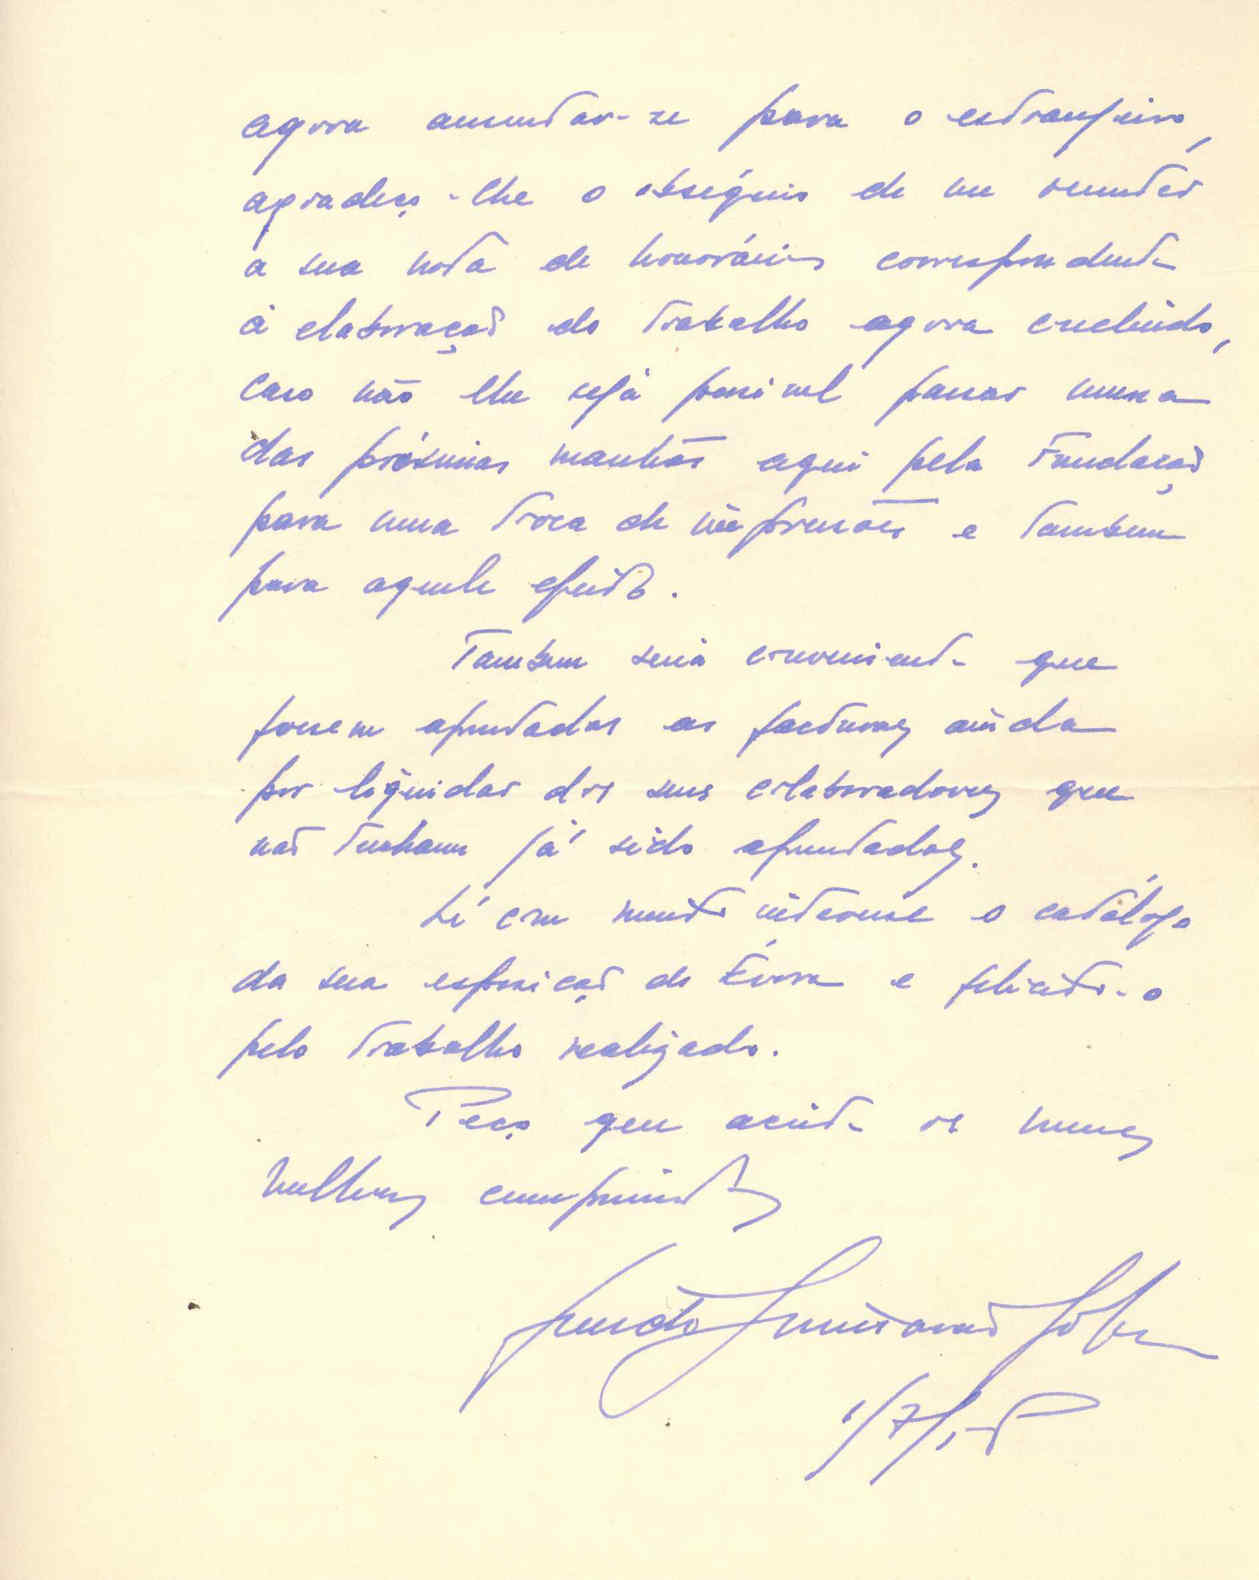 agora ausentar-se para o estranjeiro,
agradeço-lhe o obséquio de me remeter
a sua nota de honorários correspondente
à elaboração do trabalho agora concluído,
caso não lhe seja possivel passar numa
das próximas manhãs aqui pela Fundação
para uma troca de impressões e tambem
para aquele efeito.
Tambem seria conveniente que
fossem apresentadas as facturas ainda
por liquidar dos seus colaboradores que
não tenham já sido apresentadas.
Li com muito interesse o catálogo
da sua exposição de Évora e felicito-o
pelo trabalho realizado.
Peço que aceite os meus
melhores cumprimentos
Guimarães
1/7/5